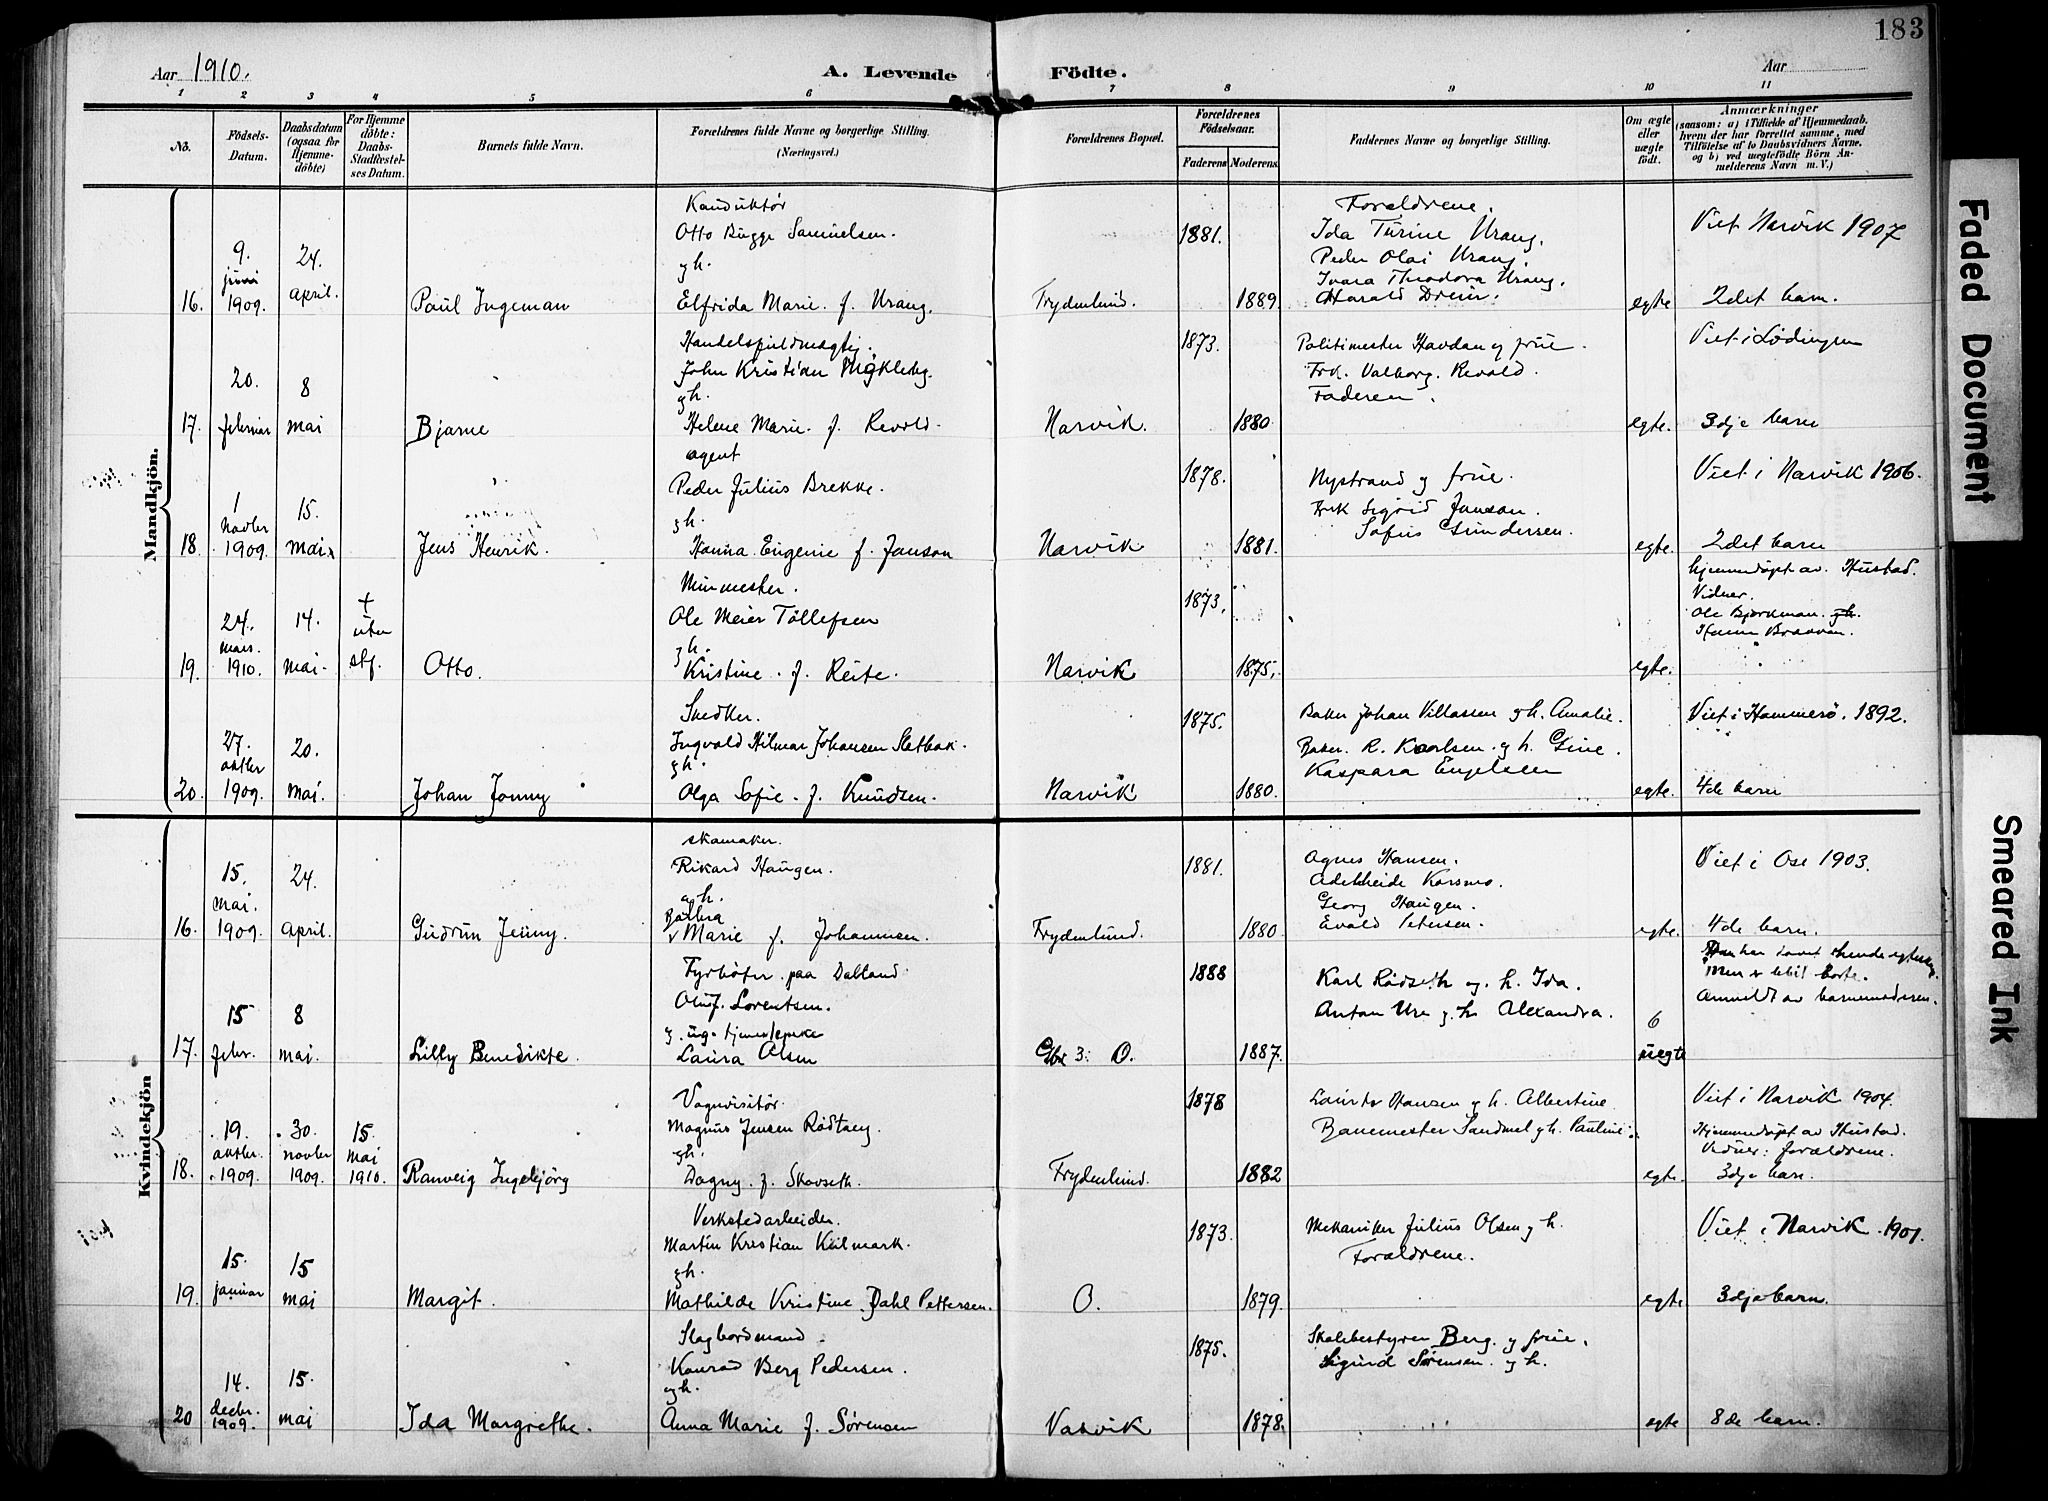 183
Aar 1910.
A. Levende Födte.
Aar
1 2 3 4 5 6 7 8 9 10 11
No.
Födsels-Datum.
Daabsdatum (ogsaa for Hjemme-döbte)
For Hjemme döbte: Daabs-Stadfæstel-ses Datum.
Barnets fulde Navn.
Forældrenes fulde Navne og borgerlige Stilling.
(Næringsvei.)
Forældrenes Bopæl.
Forældrenes Födselsaar.
Faderens. Moderens.
Faddernes Navne og borgerlige Stilling.
Om ægte eller uægte födt.
Anmærkninger
(saasom: a) i Tilfælde af Hjemmedaab, hvem der har forrettet samme, med Tilföielse af to Daabsvidners Navne, og b) ved uægtefödte Börn An-melderens Navn m. V.)
Mandkjön.
16. 9. juni 1909. 24. april. Paul Ingeman
Konduktør
Otto Bugge Samuelsen.
gh.
Elfrida Marie. f. Urang.
Frydenlund. 1881. 1889.
Forældrene.
Ida Turine Urang.
Peder Olai Urang.
Ivara Theodora Urang.
Harald Dreier.
egte
Viet Narvik 1907
2det barn.
17. 20. februar 8 mai Bjarne
Handelsfuldmægtig.
John Kristian Myklebg.
gh.
Helene Marie. f. Revold.
Narvik. 1873. 1880.
Politimester Havdan og frue.
Frk. Valborg. Revold.
Faderen.
egte.
Viet i Lødingen
3dje barn
18. 1 Novbr 1909. 15. mai Jens Henrik.
agent
Peder Julius Brekke.
gh.
Hanna Eugenie f. Janson
Narvik 1878. 1881.
Nystrand og frue.
Frk Sigrid Janson.
Sofus Gundersen.
egte.
Viet i Narvik 1906.
2det barn
19. 24. mars. 1910. 14. mai. + uten stf. Otto.
Murmester.
Ole Meier Tollefsen
gh.
Kristine. f. Reite.
Narvik 1873. 1875.
egte.
hjemmedøpt av. Hustad.
Vidner.
Ole Bjørkman. gh.
20. 27. oktbr 1909. 20. mai. Johan Jonny
Snedker.
Ingvald Hilmar Johansen Sletbak.
gh.
Olga Sofie. f. Knudsen.
Narvik 1875. 1880.
Baker Johan Villassen gh. Amalie.
Baker. R. Karlsen. g h. Gine.
Kaspara Engelsen
egte.
Viet i Hammerö. 1892.
4de barn
Kvindekjön
16. 15. mai. 1909. 24. april. Gudrun Jenny.
skomaker.
Rikard Haugen.
gh.
Barbra
Marie f. Johannesen.
Frydenlund. 1881. 1880.
Agnes Hansen.
Adelheide Korsmo.
Georg Haugen.
Evald Petersen.
egte.
Viet i Ose 1903.
4de barn.
17. 15 febr. 8 mai. Lilly Benedikte.
Fyrbøter. paa Dalland
Oluf. Lorentsen.
g. ug. tjenestepike
Laura Olsen
Gbr 3. O. 1888 1887.
Karl Rødseth og. h. Ida.
Anton Ure g. h. Alexandra.
6
uegte
Han har lovet hende egteskap
Men er blit borte.
Anmeldt av barnemoderen.
18. 19. oktbr. 1909. 30. novbr 1909. 15 mai 1910. Ranveig Ingebjørg
Vognvisitør.
Magnus Jensen Rødtang.
gh.
Dagny. f. Skavseth.
Frydenlund. 1878 1882
Laurits Hansen g h. Albertine
Banemester Sandmel gh. Pauline.
egte.
Viet i Narvik 1904.
Hjemmedøpt av Hustad.
Vidner: forældrene.
3dje barn.
19. 15. januar 15 mai Margit.
Verkstedarbeider.
Martin Kristian Kulmark.
gh.
Mathilde Kristine. Dahl Pettersen.
O. 1873. 1879.
Mekaniker Julius Olsen g h.
Forældrene.
egte
Viet i Narvik. 1901.
3dje barn.
20 14. decbr. 1909. 15. mai Ida Margrethe.
Slagbordmand
Konrad Berg Pedersen.
ogh.
Anna Marie f. Sørensen
Narvik 1875. 1878.
Skolebestyrer Berg. og frue.
Sigurd Sørensen. og h.
egte
8de barn.
Faded Document
Smeared Ink